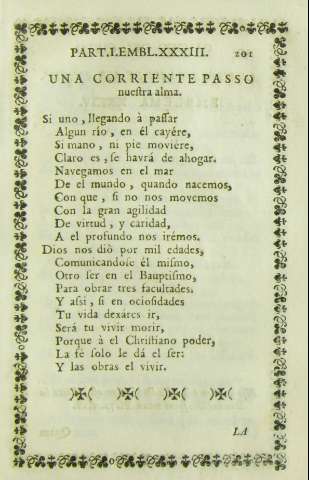 PART.I.EMBL.XXXIII. 201
UNA CORRIENTE PASSO
nuestra alma.
Si uno, llegando à passar
Algun río, en él cayére,
Si mano, ni pie moviére,
Claro es, se havrá de ahogar.
Navegamos en el mar
De el mundo, quando nacemos,
Con que, si no nos movemos
Con la gran agilidad
De virtud, y caridad,
A el profundo nos irémos.
Dios nos diò por mil edades,
Comunicandose él mismo,
Otro ser en el Bauptismo,
Para obrar tres facultades.
Y assi, si en ociosidades
Tu vida dexáres ir,
Será tu vivir morir,
Porque à el Christiano poder,
La fé solo le dá el ser:
Y las obras el vivir.
LA